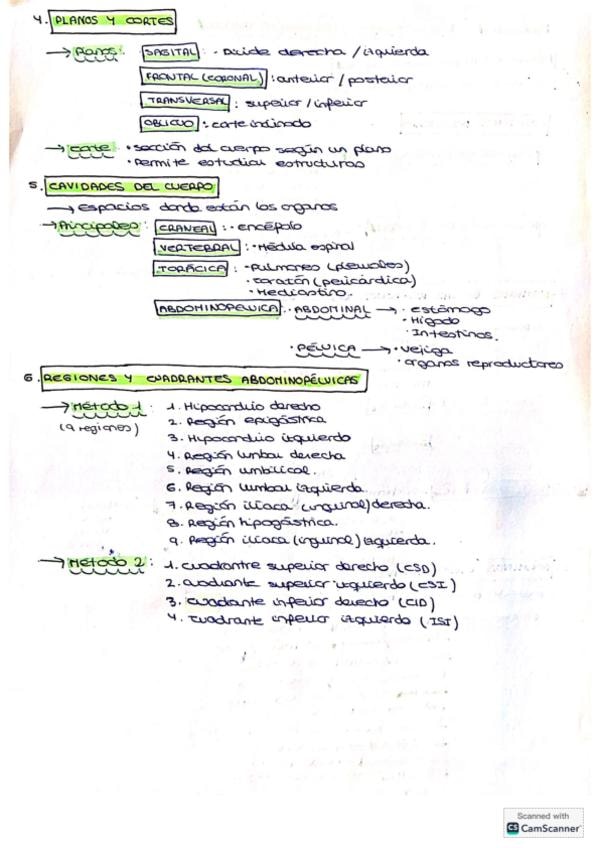 4. PLANOS Y CORTES
→ Planos: SAGITAL: · Divide derecha / izquierda
FRONTAL (CORONAL): anterior / posterior
TRANSVERSAL: superior / inferior
OBLICUO: corte inclinado
→ corte · sección del cuerpo según un plano
· Permite estudiar estructuras
5. CAVIDADES DEL CUERPO
→ Espacios donde están los organos
→ Principales: CRANEAL: · encéfalo
VERTEBRAL: · Médula espinal
TORÁCICA: · Pulmones (pleurales)
· corazón (pericárdica)
· Mediastino.
ABDOMINOPELVICA: · ABDOMINAL → · estómago
· Hígado
· Intestinos.
· PÉLVICA → · vejiga
· organos reproductores
6. REGIONES Y CUADRANTES ABDOMINOPÉLVICAS
→ Método 1: 1. Hipocondrio derecho
(9 regiones) 2. Región epigástrica
3. Hipocondrio izquierdo
4. Región lumbar derecha
5. Región umbilical.
6. Región lumbar izquierda
7. Región ilíaca (inguinal) derecha.
8. Región hipogástrica.
9. Región ilíaca (inguinal) izquierda.
→ Método 2: 1. cuadrantre superior derecho (CSD)
2. cuadrante superior izquierdo (CSI)
3. cuadrante inferior derecho (CID)
4. cuadrante inferior izquierdo (ISI)
Scanned with
CS CamScanner